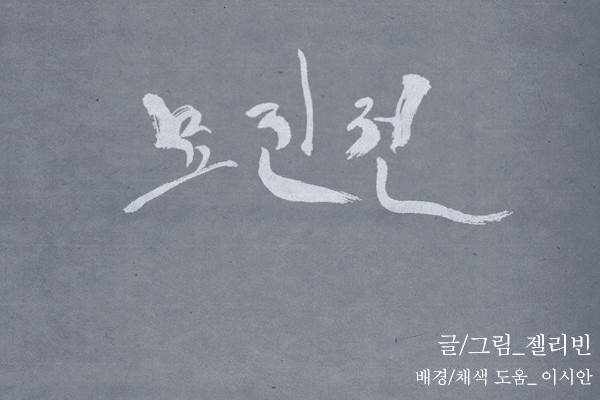 묘진전
글/그림_젤리빈
배경/채색 도움_ 이시안